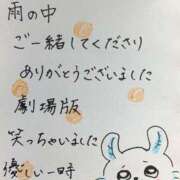 雨の中
ご一緒してくださり
ありがとうございました
劇場版
笑っちゃいました
優しい一時